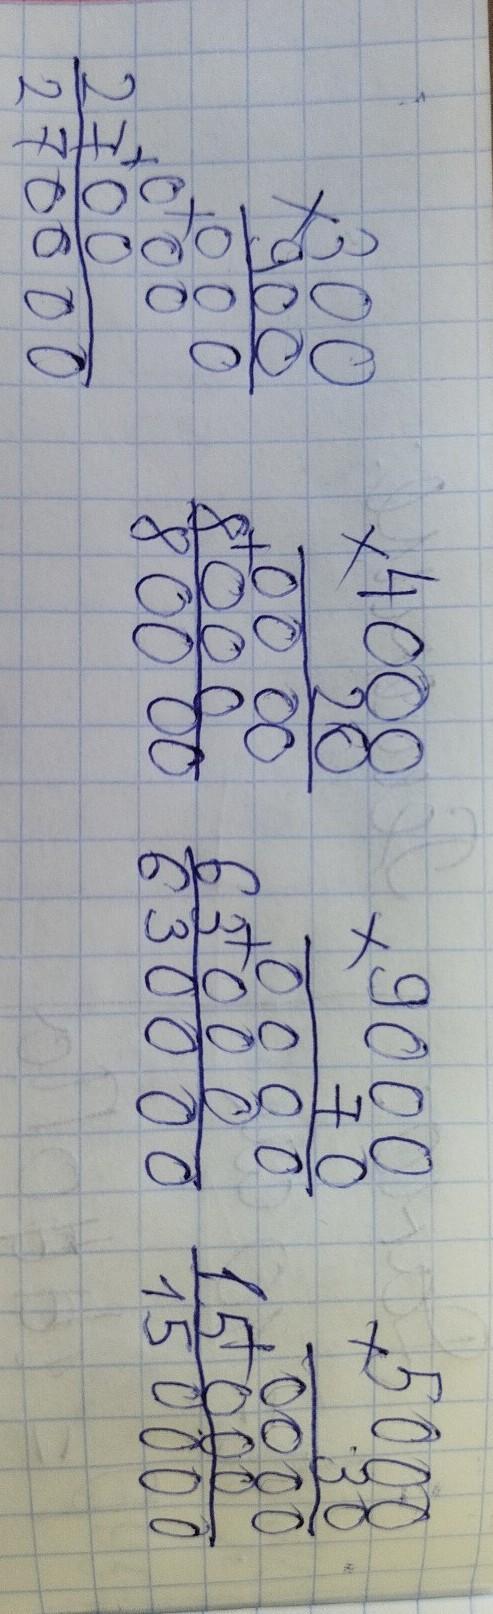 ×300
900
000
+000
+2700
270000
×4000
20
0000
+8000
80000
×9000
70
0000
+63000
630000
×5000
30
0000
+15000
150000